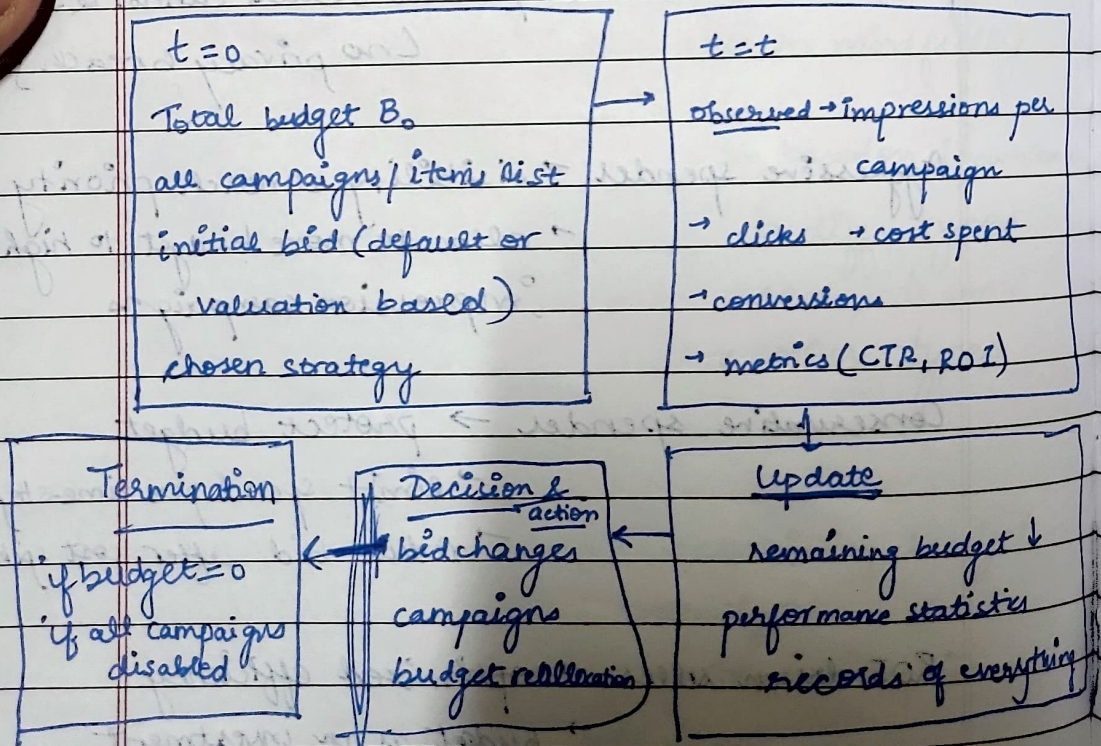 t=0
Total budget B₀
all campaigns/items list
initial bid (default or
valuation based)
chosen strategy
t=t
observed → impressions per
campaign
→ clicks → cost spent
→ conversions
→ metrics (CTR, ROI)
Update
remaining budget ↓
performance statistics
records of everything
Decision &
action
bid changes
campaigns
budget reallocation
Termination
if budget=0
if all campaigns
disabled